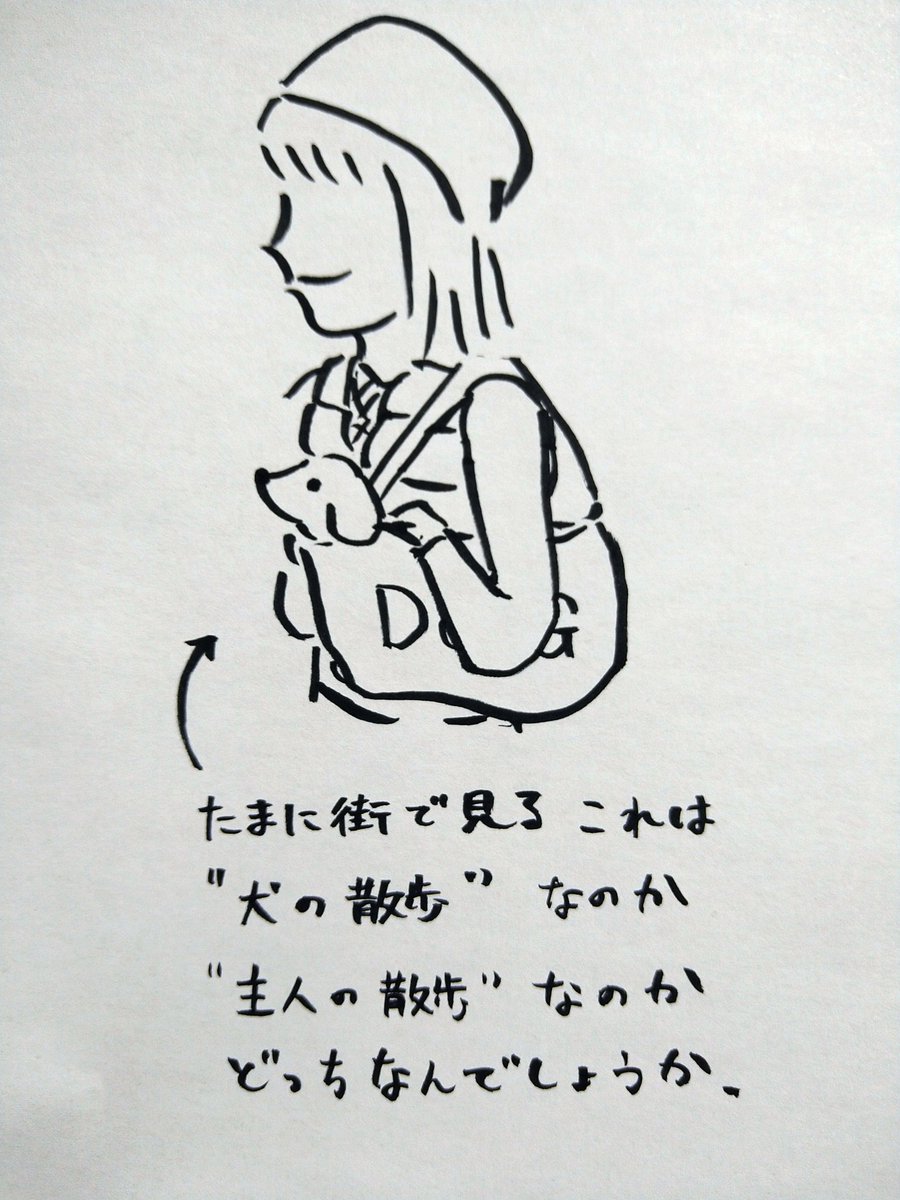 D G
たまに街で見る これは
"犬の散歩" なのか
"主人の散歩" なのか
どっちなんでしょうか、